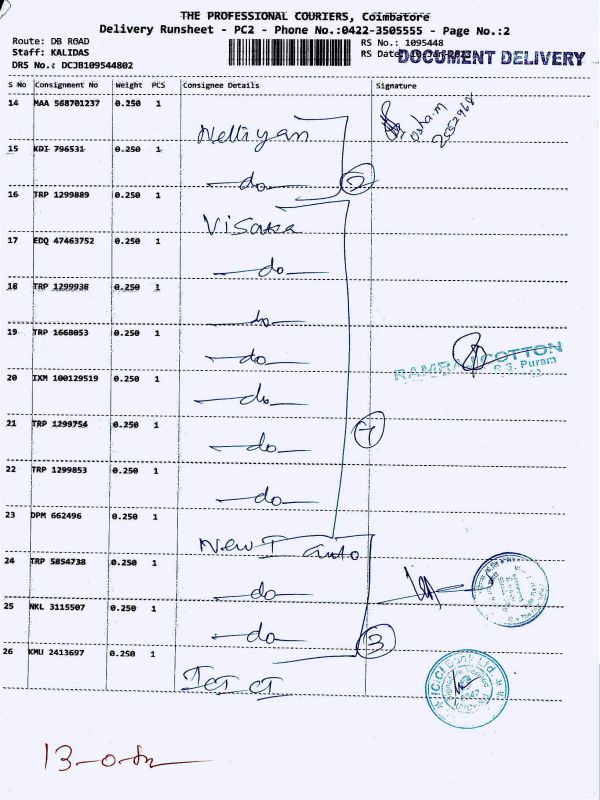 THE PROFESSIONAL COURIERS, Coimbatore
Delivery Runsheet - PC2 - Phone No.:0422-3505555 - Page No.:2
Route: DB ROAD
Staff: KALIDAS
DRS No.: DCJB109544802
RS No.: 1095448
RS Date:
DOCUMENT DELIVERY
S No Consignment No Weight PCS Consignee Details Signature
14 MAA 568701237 0.250 1
Nelliyan
Usha.m
2552968
15 KDI 796531 0.250 1
do
2
16 TRP 1299889 0.250 1
Visaka
17 EDQ 47463752 0.250 1
do
18 TRP 1299938 0.250 1
do
19 TRP 1668053 0.250 1
do
COTTON
R.S. Puram
20 IXM 100129519 0.250 1
do
21 TRP 1299754 0.250 1
do
7
22 TRP 1299853 0.250 1
do
23 DPM 662496 0.250 1
New T auto
24 TRP 5854738 0.250 1
do
25 NKL 3115507 0.250 1
do
3
26 KMU 2413697 0.250 1
ICICI Bank Ltd.
13